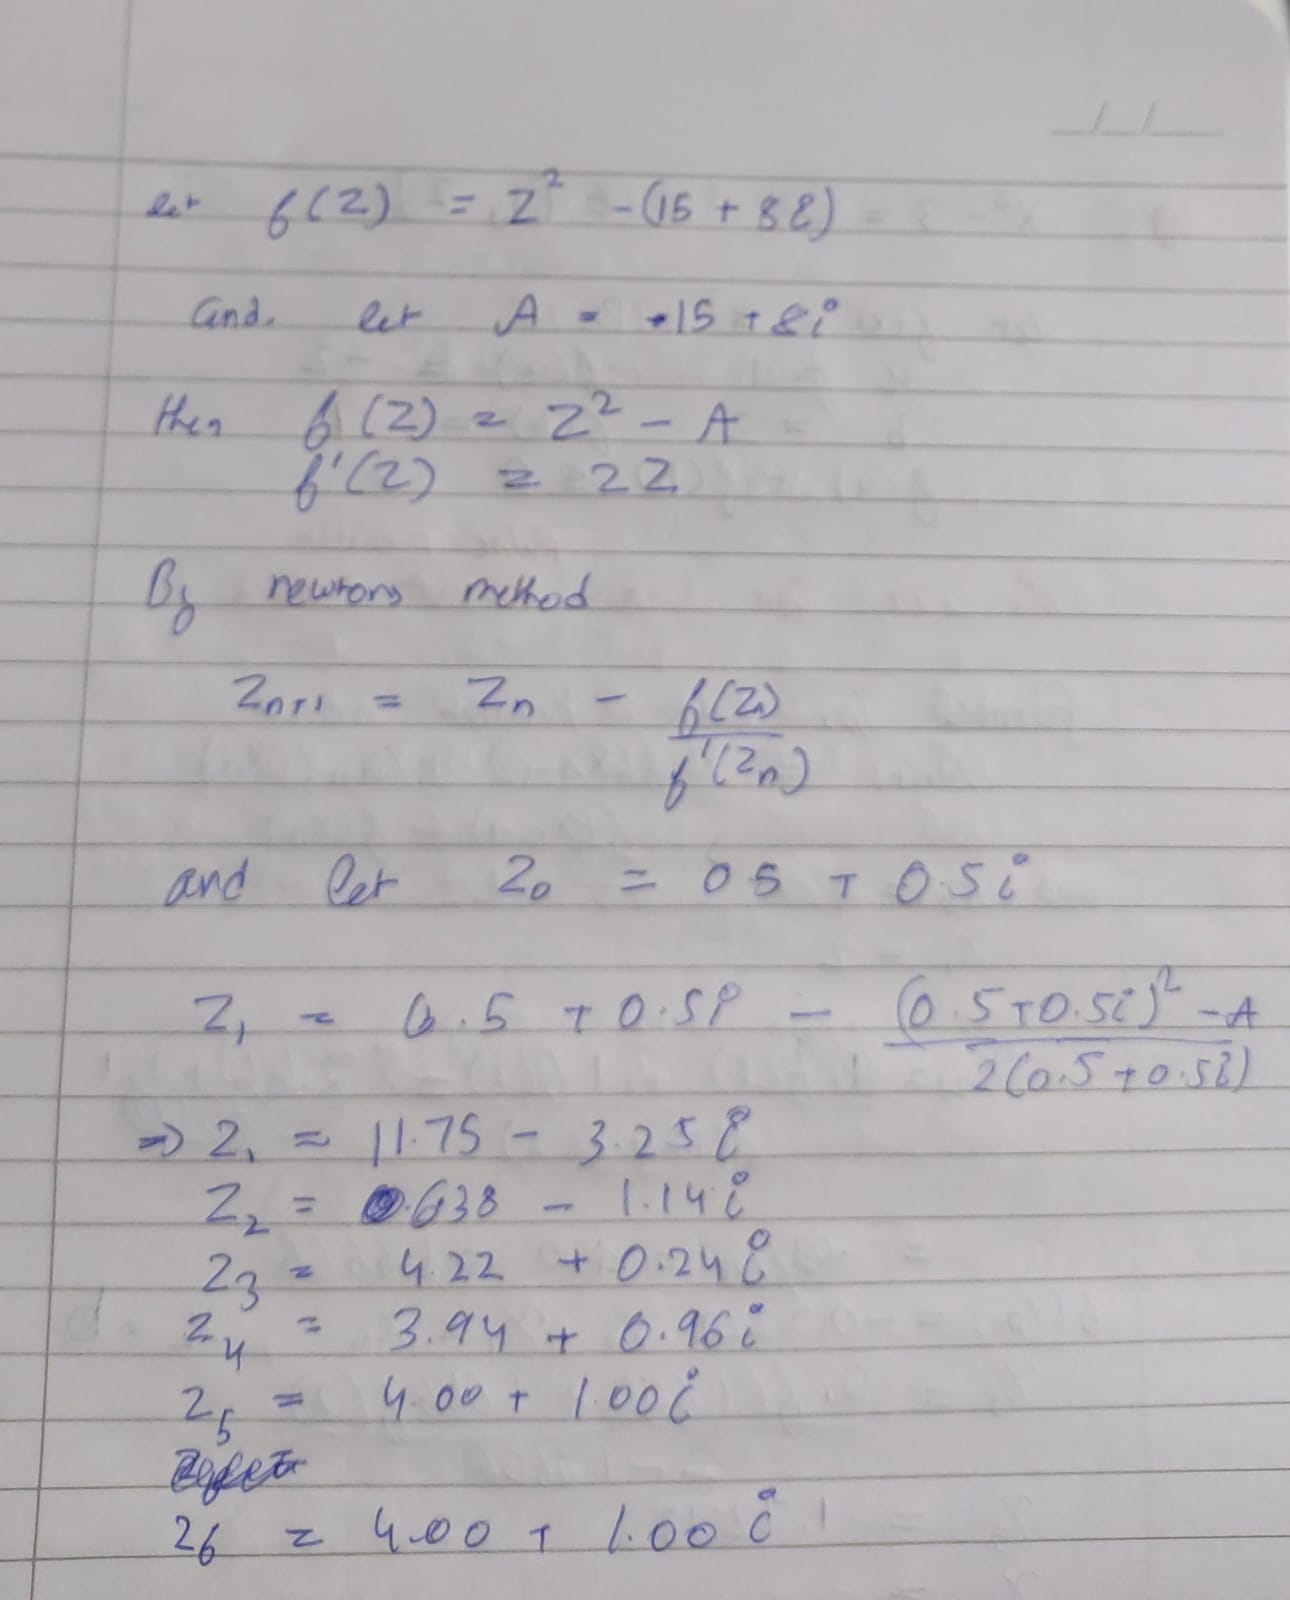 let f(z) = z² - (15 + 8i)
and. let A = 15 + 8i
then f(z) = z² - A
f'(z) = 2z
By newtons method
Zn+1 = Zn - f(Zn) / f'(Zn)
and let Z₀ = 0.5 + 0.5i
Z₁ = 0.5 + 0.5i - (0.5+0.5i)² - A / 2(0.5+0.5i)
⇒ Z₁ = 11.75 - 3.25i
Z₂ = 0.638 - 1.14i
Z₃ = 4.22 + 0.24i
Z₄ = 3.94 + 0.96i
Z₅ = 4.00 + 1.00i
Z₆ = 4.00 + 1.00i